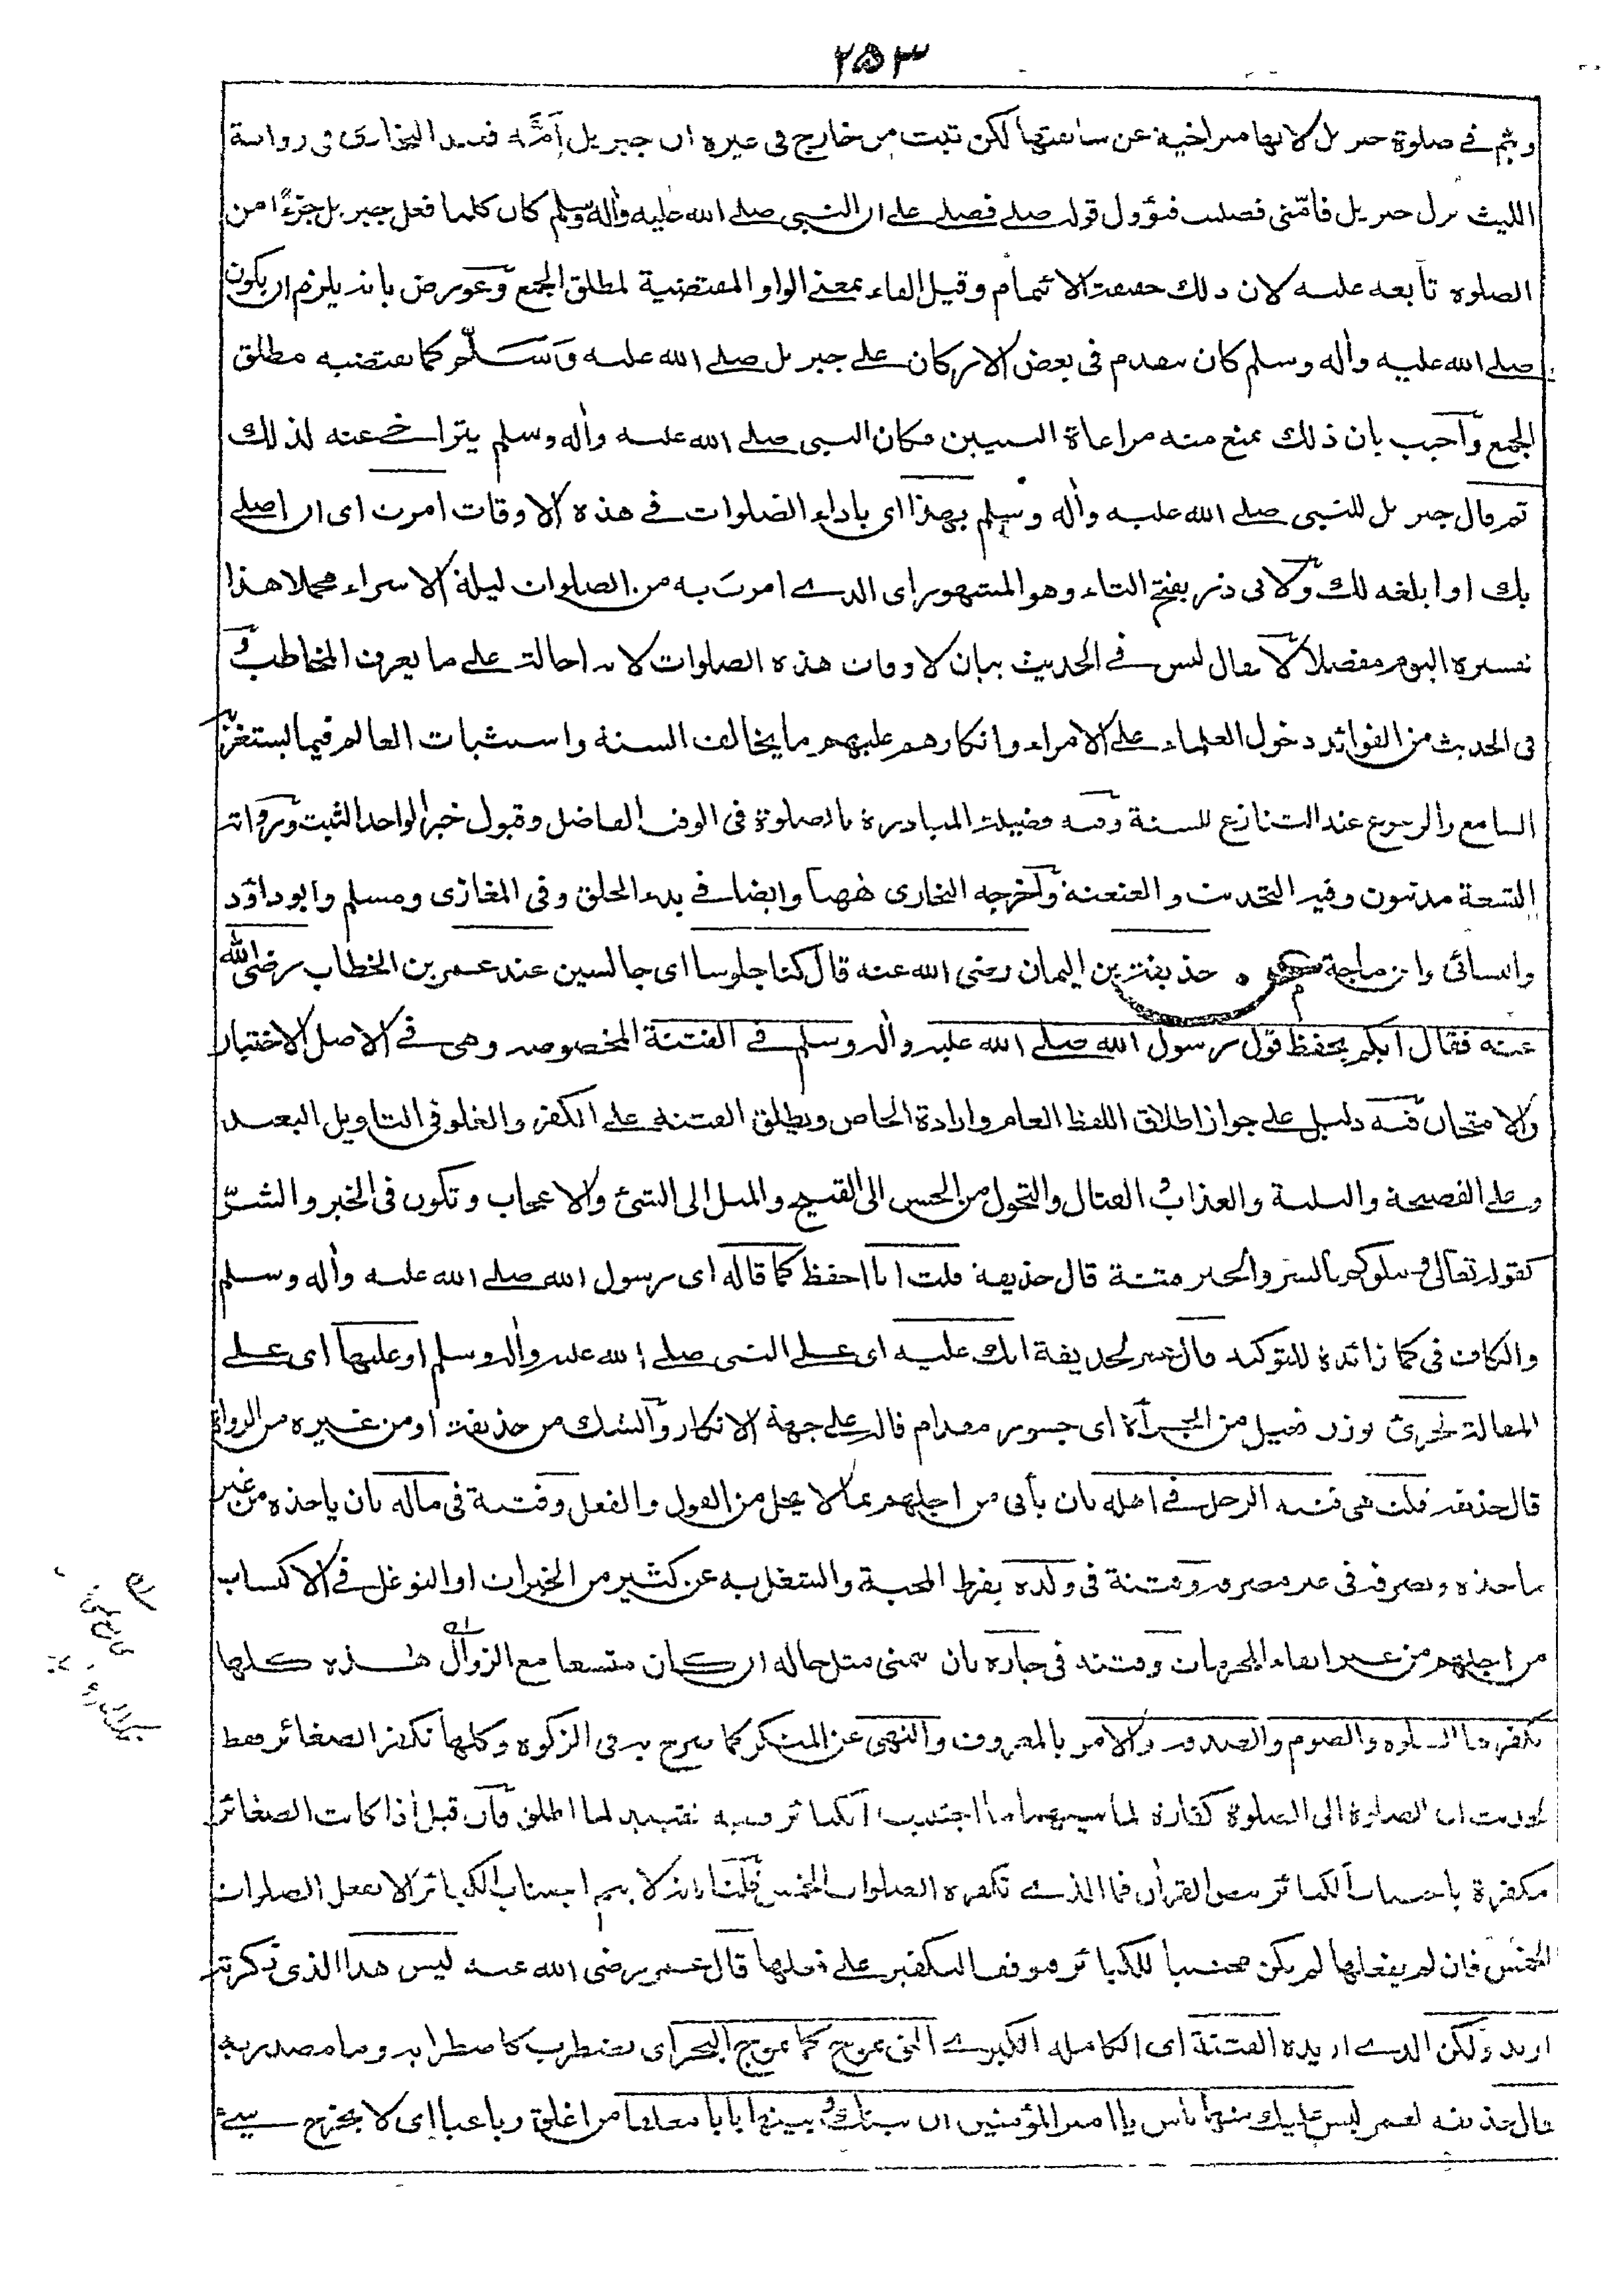 ٢٥٣
وثم في صلوة جبريل لانها متراخية عن سابقتها لكن ثبت من خارج في غيره ان جبريل أمَّه فعند البخاري في رواية
الليث نزل جبريل فامّني فصليت فيؤول قوله صلى فصلى على ان النبي صلى الله عليه وأله وسلم كان كلما فعل جبريل جزءًا من
الصلوة تابعه عليه لان ذلك حقيقة الائتمام وقيل الفاء بمعنى الواو المقتضية لمطلق الجمع وعورض بانه يلزم ان يكون
صلى الله عليه وأله وسلم كان يتقدم في بعض الاركان على جبريل صلى الله عليه وَسَلَّم كما يقتضيه مطلق
الجمع وأجيب بان ذلك يمنع منه مراعاة التبيين فكان النبي صلى الله عليه وأله وسلم يتراخى عنه لذلك
ثم قال جبريل للنبي صلى الله عليه وأله وسلم بهذا اى باداء الصلوات في هذه الاوقات امرت اى ان اصلى
بك او ابلغه لك ولابي ذر بفتح التاء وهو المشهور اى الذي امرت به من الصلوات ليلة الاسراء مجملا هذا
تفسيره اليوم مفصلا لا يقال ليس في الحديث بيان لاوقات هذه الصلوات لانه احالة على ما يعرف المخاطب و
في الحديث من الفوائد دخول العلماء على الامراء وانكارهم عليهم ما يخالف السنة واستثبات العالم فيما يستغربه
السامع والرجوع عند التنازع للسنة وفيه فضيلة المبادرة بالصلوة في الوقت الفاضل وقبول خبر الواحد الثبت ورواته
التسعة مدنيون وفيه التحديث والعنعنة وأخرجه البخاري ههنا وايضا في بدء الخلق وفي المغازي ومسلم وابو داؤد
والنسائي وابن ماجة حذيفة بن اليمان رضي الله عنه قال كنا جلوسا اى جالسين عند عمر بن الخطاب رضي الله
عنه فقال ايكم يحفظ قول رسول الله صلى الله عليه وأله وسلم في الفتنة المخصوصة وهي في الاصل الاختبار
والامتحان فيه دليل على جواز اطلاق اللفظ العام وارادة الخاص ويطلق الفتنة على الكفر والغلو في التاويل البعيد
وعلى الفضيحة والبلية والعذاب و القتال والتحول من الحسن الى القبيح والميل الى الشئ والاعجاب وتكون في الخير والشرّ
كقوله تعالى ونبلوكم بالشر والخير فتنة قال حذيفة قلت انا احفظ كما قاله اى رسول الله صلى الله عليه وأله وسلم
والكاف في كما زائدة للتوكيد قال عمر لحذيفة انك عليه اى على النبي صلى الله عليه وأله وسلم او عليها اى على
المقالة لجرئ بوزن فعيل من الجرأة اى جسور مقدام قاله على جهة الانكار والشك من حذيفة او من غيره من الرواة
قال حذيفة قلت هي فتنة الرجل في اهله بان يأتي من اجلهم بما لا يحل من القول والفعل وفتنة في ماله بان ياخذه من غير
ماخذه ويصرفه في غير مصرفه وفتنة في ولده بفرط المحبة والشغل به عن كثير من الخيرات او التوغل في الاكتساب
من اجلهم من غير اتقاء المحرمات وفتنة في جاره بان يتمنى مثل حاله ان كان متسعا مع الزوال هذه كلها
تكفرها الصلوة والصوم والصدقة والامر بالمعروف والنهي عن المنكر كما صرح به في الزكوة وكلها تكفر الصغائر فقط
لحديث ان الصلوة الى الصلوة كفارة لما بينهما ما اجتنبت الكبائر ففيه تقييد لما اطلق فان قيل اذا كانت الصغائر
مكفرة باجتناب الكبائر بنص القرأن فما الذي تكفره الصلوات الخمس قلنا بانه لا يتم اجتناب الكبائر الا بفعل الصلوات
الخمس فان لم يفعلها لم يكن مجتنبا للكبائر فتوقف التكفير على فعلها قال عمر رضي الله عنه ليس هذا الذي ذكرته
اريد ولكن الذي اريده الفتنة اى الكاملة الكبرى التي تموج كما يموج البحر اى تضطرب كاضطرابه وما مصدرية
قال حذيفة لعمر ليس عليك منها باس يا امير المؤمنين ان بينك وبينها بابا مغلقا من اغلق رباعيا اى لا يخرج شيئ